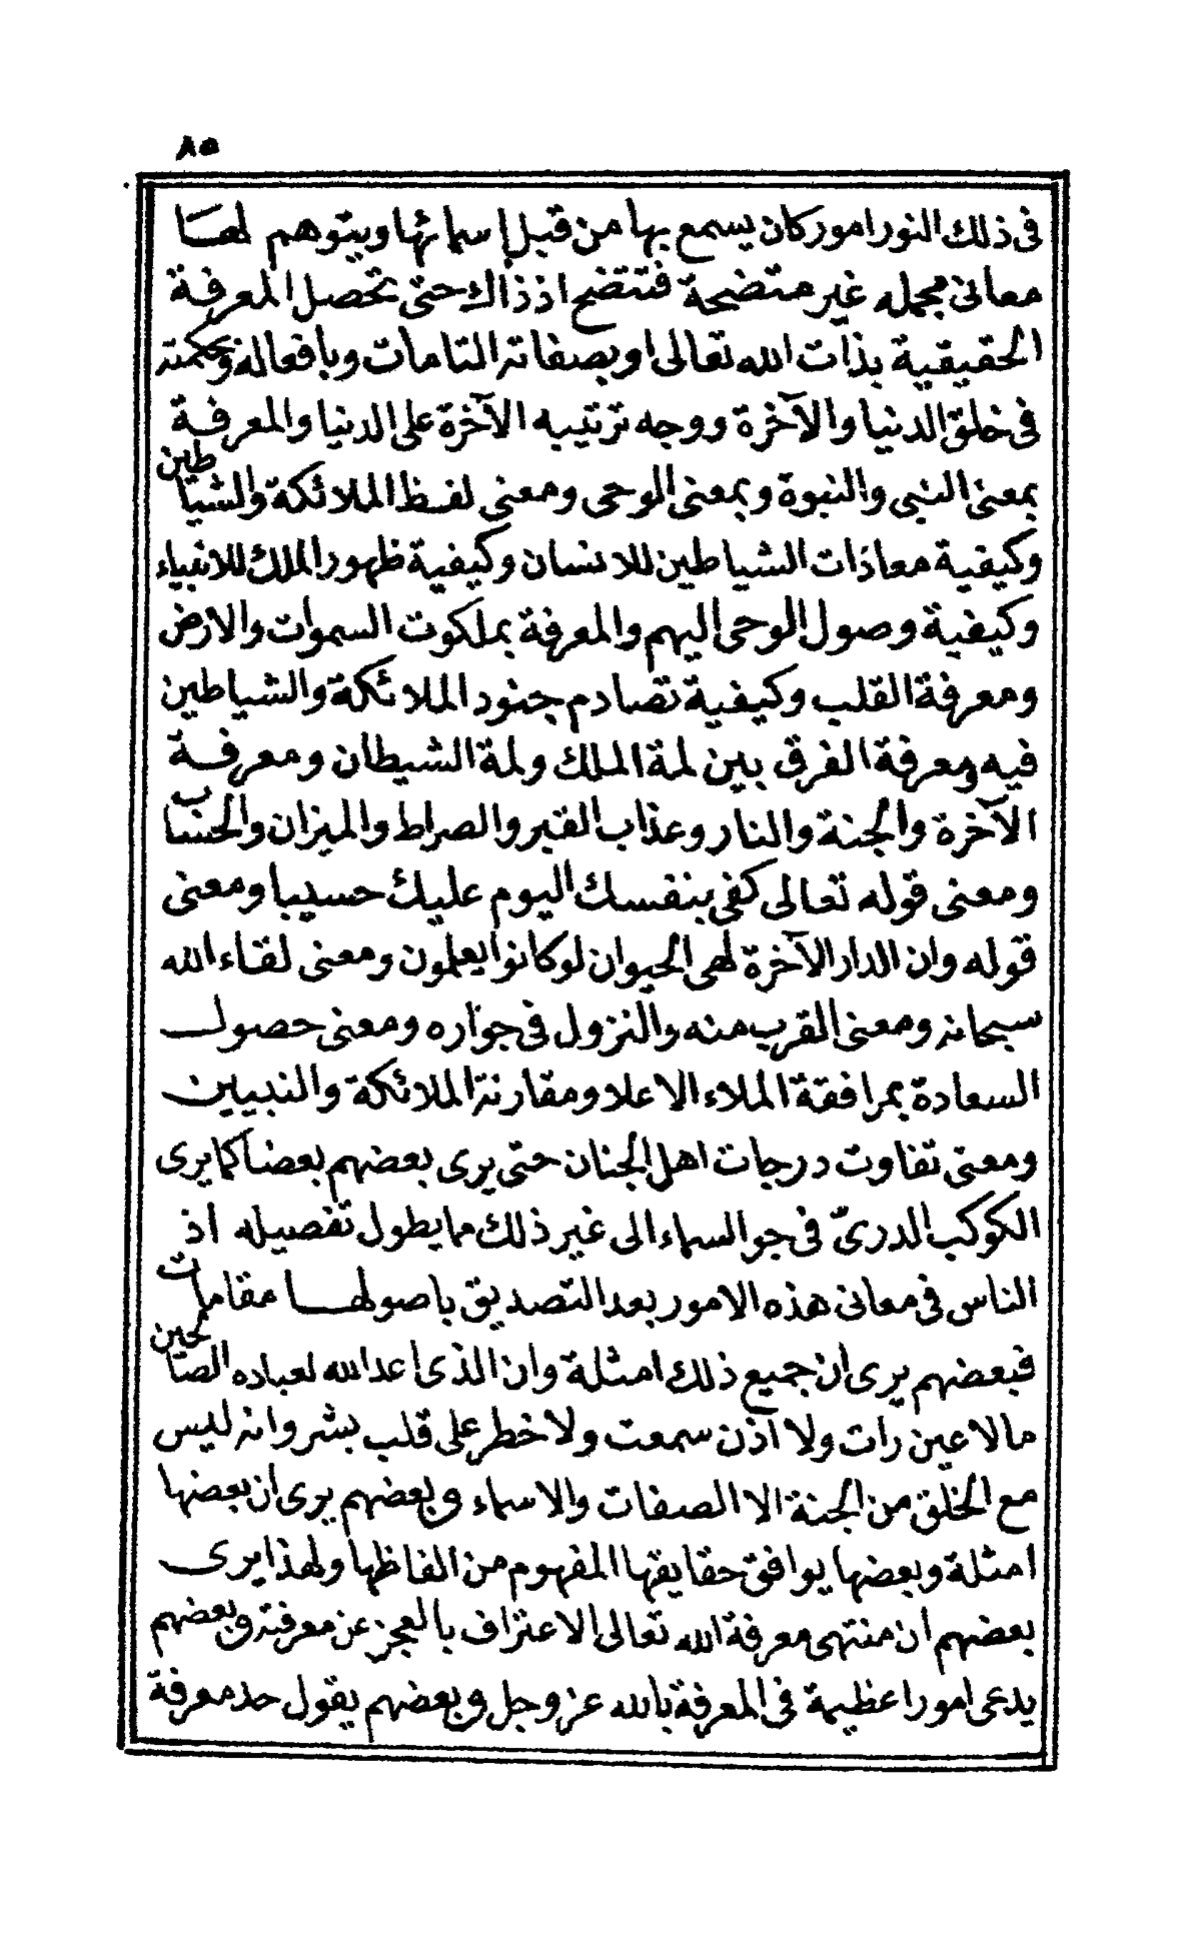 ٨٥
فى ذلك النور امور كان يسمع بها من قبل إسمائها ويتوهم لهــا
معانى مجمله غير متضحة فتتضح اذ ذاك حتى تحصل المعرفــة
الحقيقية بذات الله تعالى او بصفاته التامات وبافعاله وبحكمته
فى خلق الدنيا والآخرة ووجه ترتيبه الآخرة على الدنيا والمعرفــة
بمعنى النبى والنبوة وبمعنى الوحى ومعنى لفظ الملائكة والشياطين
وكيفية معاذات الشياطين للانسان وكيفية ظهور الملك للانبياء
وكيفية وصول الوحى اليهم والمعرفة بملكوت السموات والارض
ومعرفة القلب وكيفية تصادم جنود الملائكة والشياطين
فيه ومعرفة الفرق بين لمة الملك ولمة الشيطان ومعرفــة
الآخرة والجنة والنار وعذاب القبر والصراط والميزان والحساب
ومعنى قوله تعالى كفى بنفسك اليوم عليك حسيبا ومعنى
قوله وان الدار الآخرة لهى الحيوان لو كانوا يعلمون ومعنى لقاء الله
سبحانه ومعنى القرب منه والنزول فى جواره ومعنى حصول
السعادة بمرافقة الملاء الاعلا ومقارنة الملائكة والنبيين
ومعنى تفاوت درجات اهل الجنان حتى يرى بعضهم بعضا كما يرى
الكوكب الدرىّ فى جو السماء الى غير ذلك مما يطول تفصيله اذ
الناس فى معانى هذه الامور بعد التصديق باصولهــا مقامات
فبعضهم يرى ان جميع ذلك امثلة وان الذى اعد الله لعباده الصالحين
ما لا عين رات ولا اذن سمعت ولا خطر على قلب بشر وانه ليس
مع الخلق من الجنة الا الصفات والاسماء وبعضهم يرى ان بعضها
امثلة وبعضها يوافق حقايقها المفهوم من الفاظها ولهذا يرى
بعضهم ان منتهى معرفة الله تعالى الاعتراف بالعجز عن معرفته وبعضهم
يدعى امورا عظيمة فى المعرفة بالله عز وجل وبعضهم يقول حد معرفة